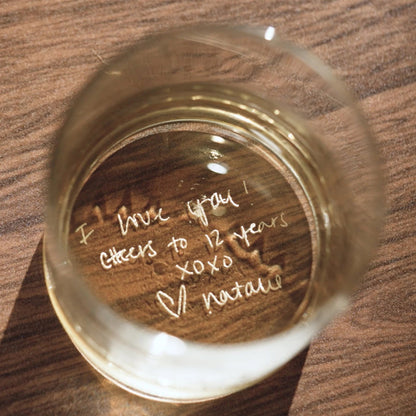 I love you!
cheers to 12 years
xoxo
♡ natalie